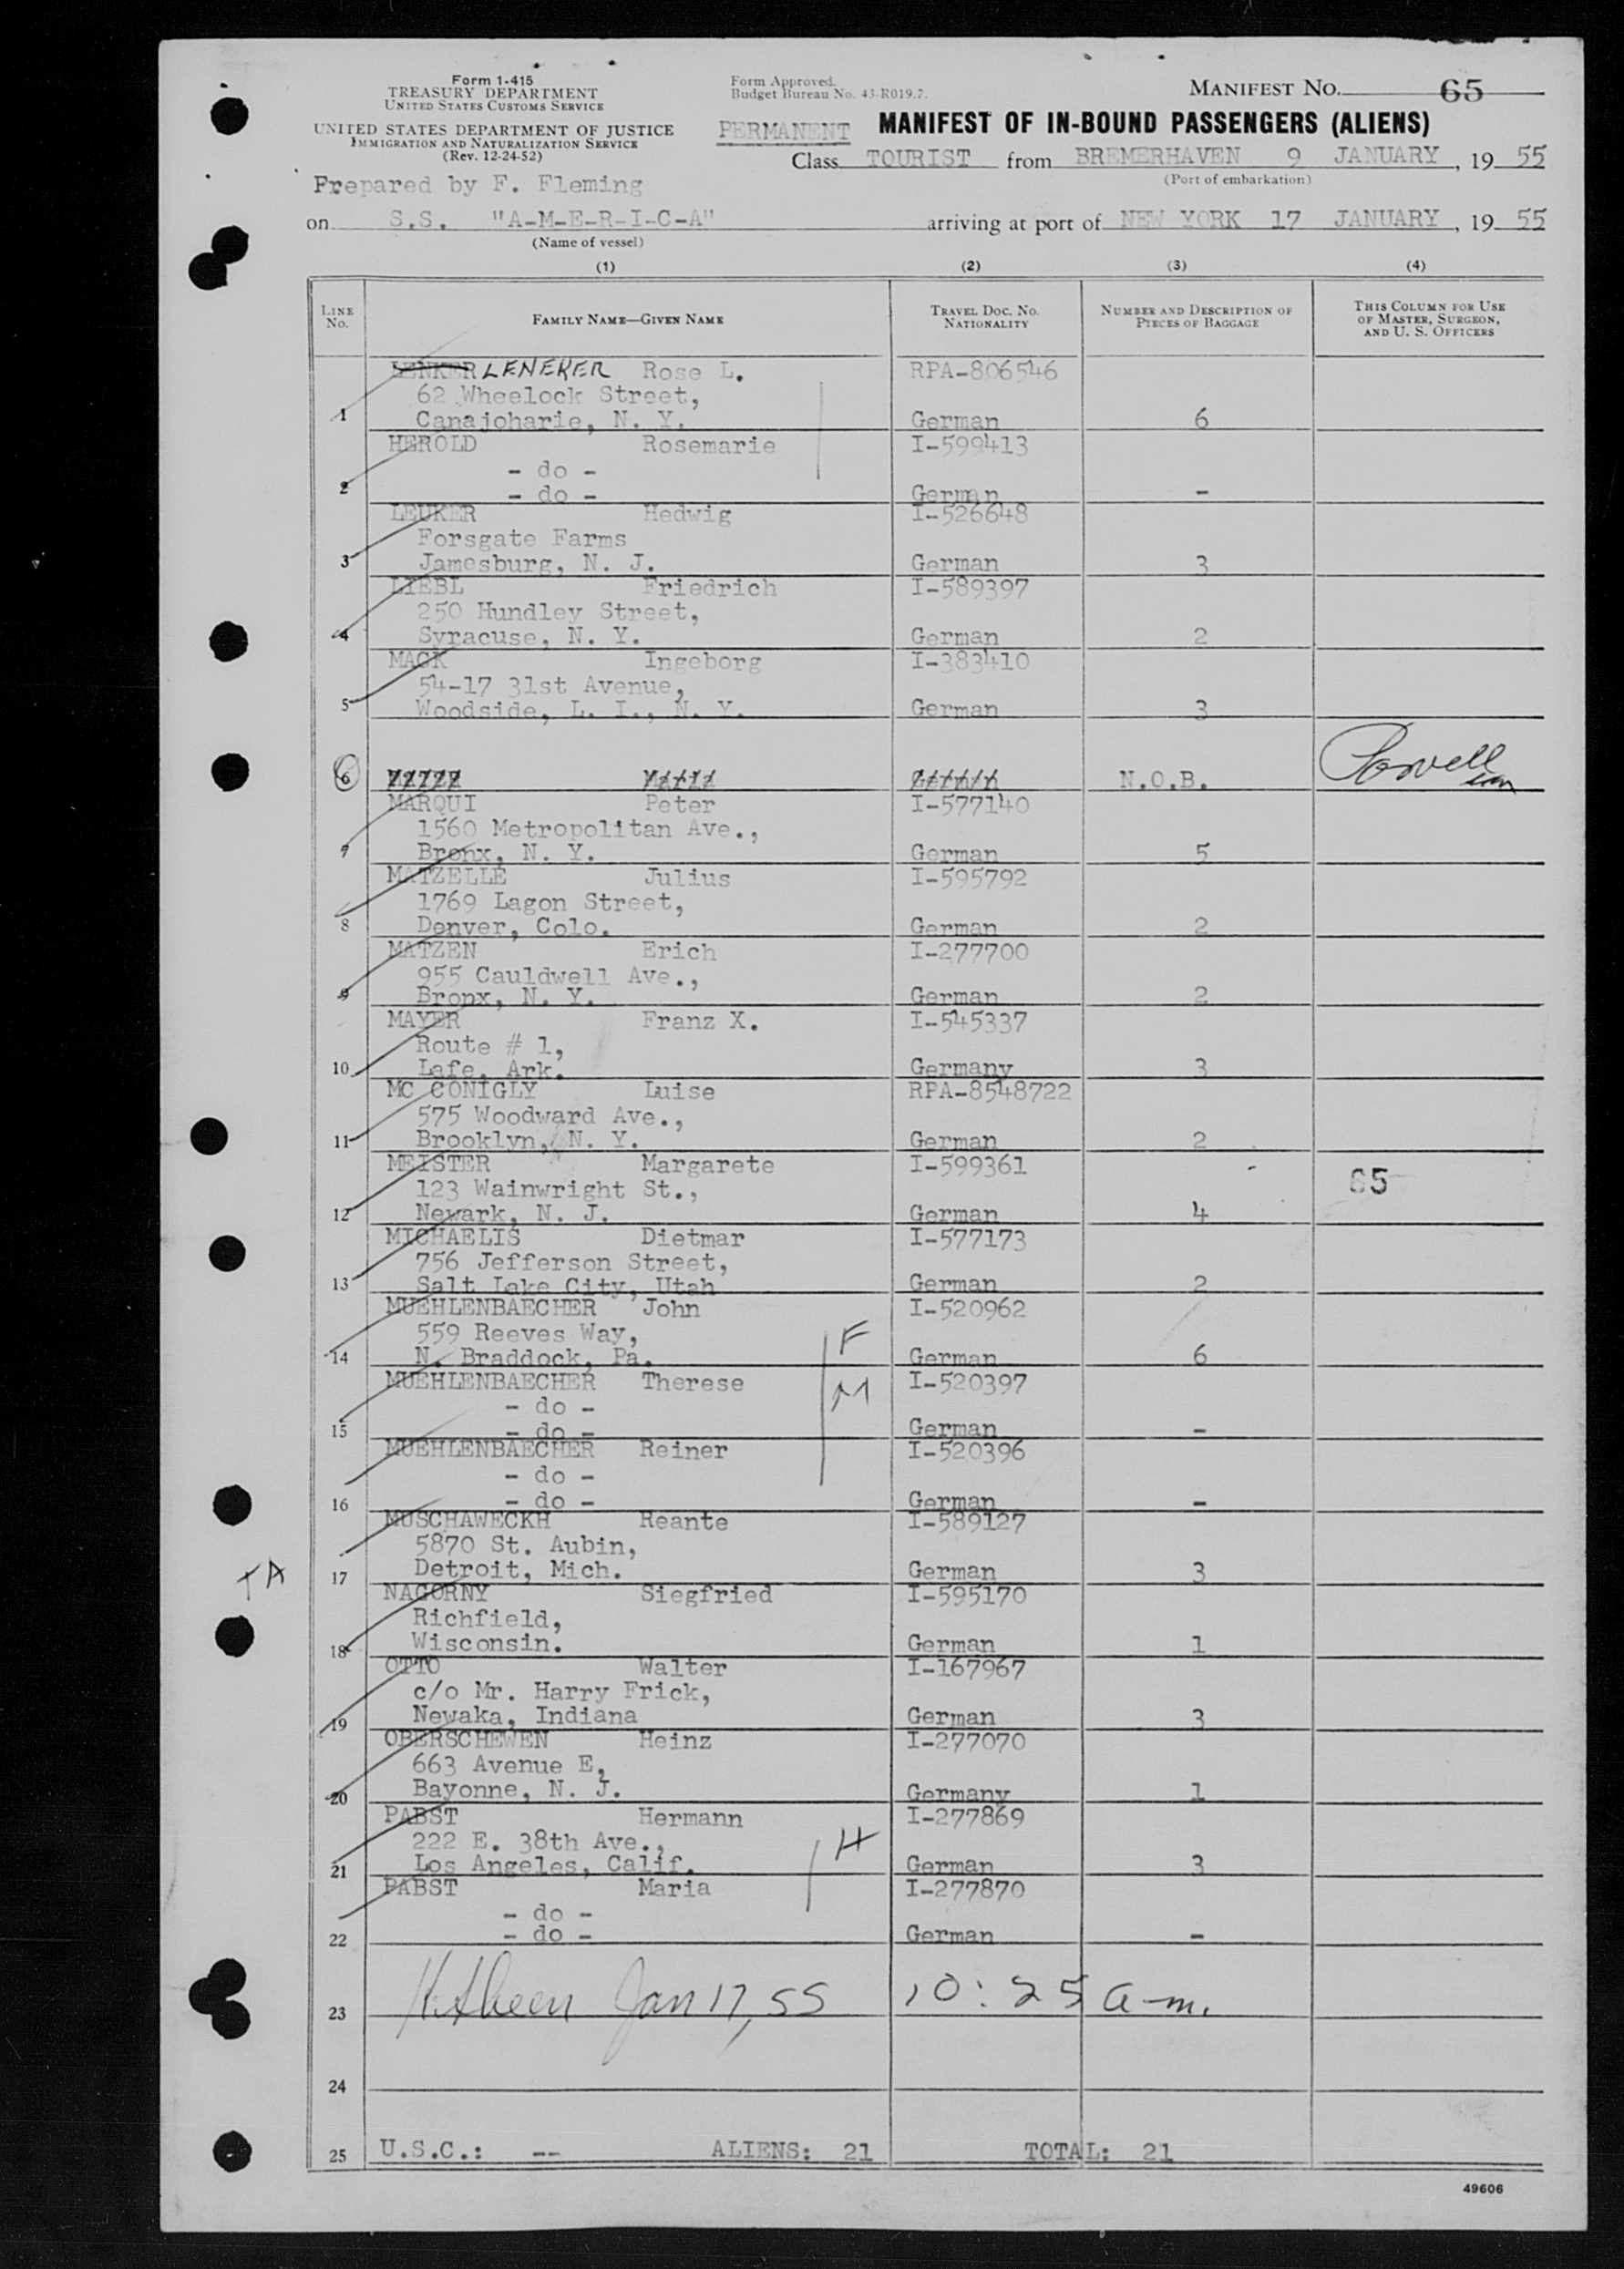 Form 1-415
TREASURY DEPARTMENT
UNITED STATES CUSTOMS SERVICE
UNITED STATES DEPARTMENT OF JUSTICE
IMMIGRATION AND NATURALIZATION SERVICE
(Rev. 12-24-52)
Form Approved.
Budget Bureau No. 43-R019.7.
MANIFEST NO. 65
PERMANENT MANIFEST OF IN-BOUND PASSENGERS (ALIENS)
Class TOURIST from BREMERHAVEN 9 JANUARY, 19 55
(Port of embarkation)
Prepared by F. Fleming
on S.S. "A-M-E-R-I-C-A" arriving at port of NEW YORK 17 JANUARY, 19 55
(Name of vessel)
(1) (2) (3) (4)
LINE NO. FAMILY NAME—GIVEN NAME TRAVEL DOC. NO. NATIONALITY NUMBER AND DESCRIPTION OF PIECES OF BAGGAGE THIS COLUMN FOR USE OF MASTER, SURGEON, AND U. S. OFFICERS
LENKER LENEKER Rose L. RPA-806546
62 Wheelock Street,
1 Canajoharie, N. Y. German 6
HEROLD Rosemarie I-599413
- do -
2 - do - German -
LEUKER Hedwig I-526648
Forsgate Farms
3 Jamesburg, N. J. German 3
LIEBL Friedrich I-589397
250 Hundley Street,
4 Syracuse, N. Y. German 2
MACK Ingeborg I-383410
54-17 31st Avenue,
5 Woodside, L. I., N. Y. German 3
6 N.O.B. Powell
MARQUI Peter I-577140
1560 Metropolitan Ave.,
7 Bronx, N. Y. German 5
MATZELLE Julius I-595792
1769 Lagon Street,
8 Denver, Colo. German 2
MATZEN Erich I-277700
955 Cauldwell Ave.,
9 Bronx, N. Y. German 2
MAYER Franz X. I-545337
Route # 1,
10 Lafe, Ark. Germany 3
MC CONIGLY Luise RPA-8548722
575 Woodward Ave.,
11 Brooklyn, N. Y. German 2
MEISTER Margarete I-599361
123 Wainwright St., 65
12 Newark, N. J. German 4
MICHAELIS Dietmar I-577173
756 Jefferson Street,
13 Salt Lake City, Utah German 2
MUEHLENBAECHER John I-520962
559 Reeves Way, F
14 N. Braddock, Pa. German 6
MUEHLENBAECHER Therese I-520397
- do - M
15 - do - German -
MUEHLENBAECHER Reiner I-520396
- do -
16 - do - German -
MUSCHAWECKH Reante I-589127
5870 St. Aubin,
TA 17 Detroit, Mich. German 3
NAGORNY Siegfried I-595170
Richfield,
18 Wisconsin. German 1
OTTO Walter I-167967
c/o Mr. Harry Frick,
19 Newaka, Indiana German 3
OBERSCHEWEN Heinz I-277070
663 Avenue E,
20 Bayonne, N. J. Germany 1
PABST Hermann I-277869
222 E. 38th Ave., H
21 Los Angeles, Calif. German 3
PABST Maria I-277870
- do -
22 - do - German -
23 Jan 17, 55 10:25 a-m.
24
25 U.S.C.: -- ALIENS: 21 TOTAL: 21
49606